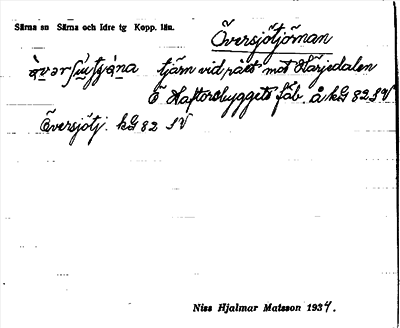 Särna sn Särna och Idre tg Kopp. län.
Översjötjärnan
tjärn vid rået mot Härjedalen
Ö Haftorsbyggets fäb. å kG 82 SV
Översjötj. kG 82 SV
Niss Hjalmar Matsson 1934.